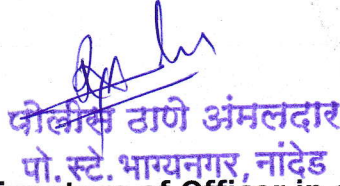 पोलीस ठाणे अंमलदार
पो. स्टे. भाग्यनगर, नांदेड
of Officer in